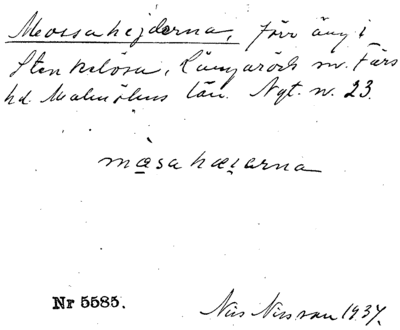 Mossahejderna, förr äng i
Stenkelösa, Långaröds sn. Färs
hd. Malmöhus län. Nyt. n. 23.
måsahæjarna
Nr 5585.
Nils Nilsson 1937.